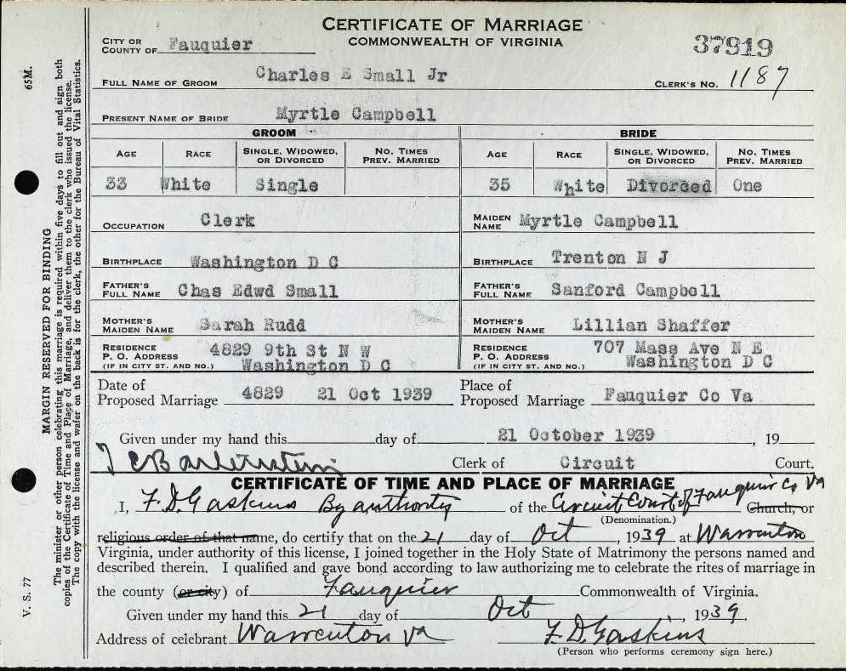 CERTIFICATE OF MARRIAGE
COMMONWEALTH OF VIRGINIA
CITY OR COUNTY OF Fauquier
37919
FULL NAME OF GROOM Charles E Small Jr CLERK'S No. 1187
PRESENT NAME OF BRIDE Myrtle Campbell
GROOM BRIDE
AGE RACE SINGLE, WIDOWED, OR DIVORCED NO. TIMES PREV. MARRIED AGE RACE SINGLE, WIDOWED, OR DIVORCED NO. TIMES PREV. MARRIED
33 White Single 35 White Divorced One
OCCUPATION Clerk MAIDEN NAME Myrtle Campbell
BIRTHPLACE Washington D C BIRTHPLACE Trenton N J
FATHER'S FULL NAME Chas Edwd Small FATHER'S FULL NAME Sanford Campbell
MOTHER'S MAIDEN NAME Sarah Rudd MOTHER'S MAIDEN NAME Lillian Shaffer
RESIDENCE P. O. ADDRESS (IF IN CITY ST. AND NO.) 4829 9th St N W Washington D C RESIDENCE P. O. ADDRESS (IF IN CITY ST. AND NO.) 707 Mass Ave N E Washington D C
Date of Proposed Marriage 4829 21 Oct 1939 Place of Proposed Marriage Fauquier Co Va
Given under my hand this day of 21 October 1939, 19
Clerk of Circuit Court.
CERTIFICATE OF TIME AND PLACE OF MARRIAGE
I, F. D. Gaskins By authority of the Circuit Court of Fauquier Co Va Church, or
(Denomination.)
religious order of that name, do certify that on the 21 day of Oct, 1939 at Warrenton
Virginia, under authority of this license, I joined together in the Holy State of Matrimony the persons named and
described therein. I qualified and gave bond according to law authorizing me to celebrate the rites of marriage in
the county (or city) of Fauquier Commonwealth of Virginia.
Given under my hand this 21 day of Oct, 1939.
Address of celebrant Warrenton Va F. D. Gaskins
(Person who performs ceremony sign here.)
65M.
MARGIN RESERVED FOR BINDING
The minister or other person celebrating this marriage is required within five days to fill out and sign both
copies of the Certificate of Time and Place of Marriage, and deliver them to the clerk who issued the license.
The copy with the license and wafer on the back is for the clerk, the other for the Bureau of Vital Statistics.
V. S. 77